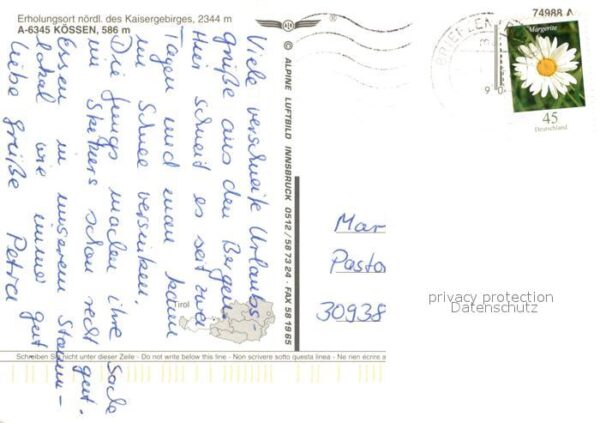 Erholungsort nördl. des Kaisergebirges, 2344 m
A-6345 KÖSSEN, 586 m
Viele verschneite Urlaubs-
grüße aus den Bergen.
Hier schneit es seit zwei
Tagen und man kann
im Schnee versinken.
Die Jungs machen ihre Sache
im Skikurs schon recht gut.
Essen in unserem Stamm-
lokal wie immer gut.
Liebe Grüße Petra
© ALPINE LUFTBILD INNSBRUCK 0512/587324 · FAX 581965
74988 A
BRIEFZEN
Margerite
45
Deutschland
Mar
Pasto
30938
privacy protection
Datenschutz
Tirol
Schreiben Sie nicht unter dieser Zeile - Do not write below this line - Non scrivere sotto questa linea - Ne rien écrire a